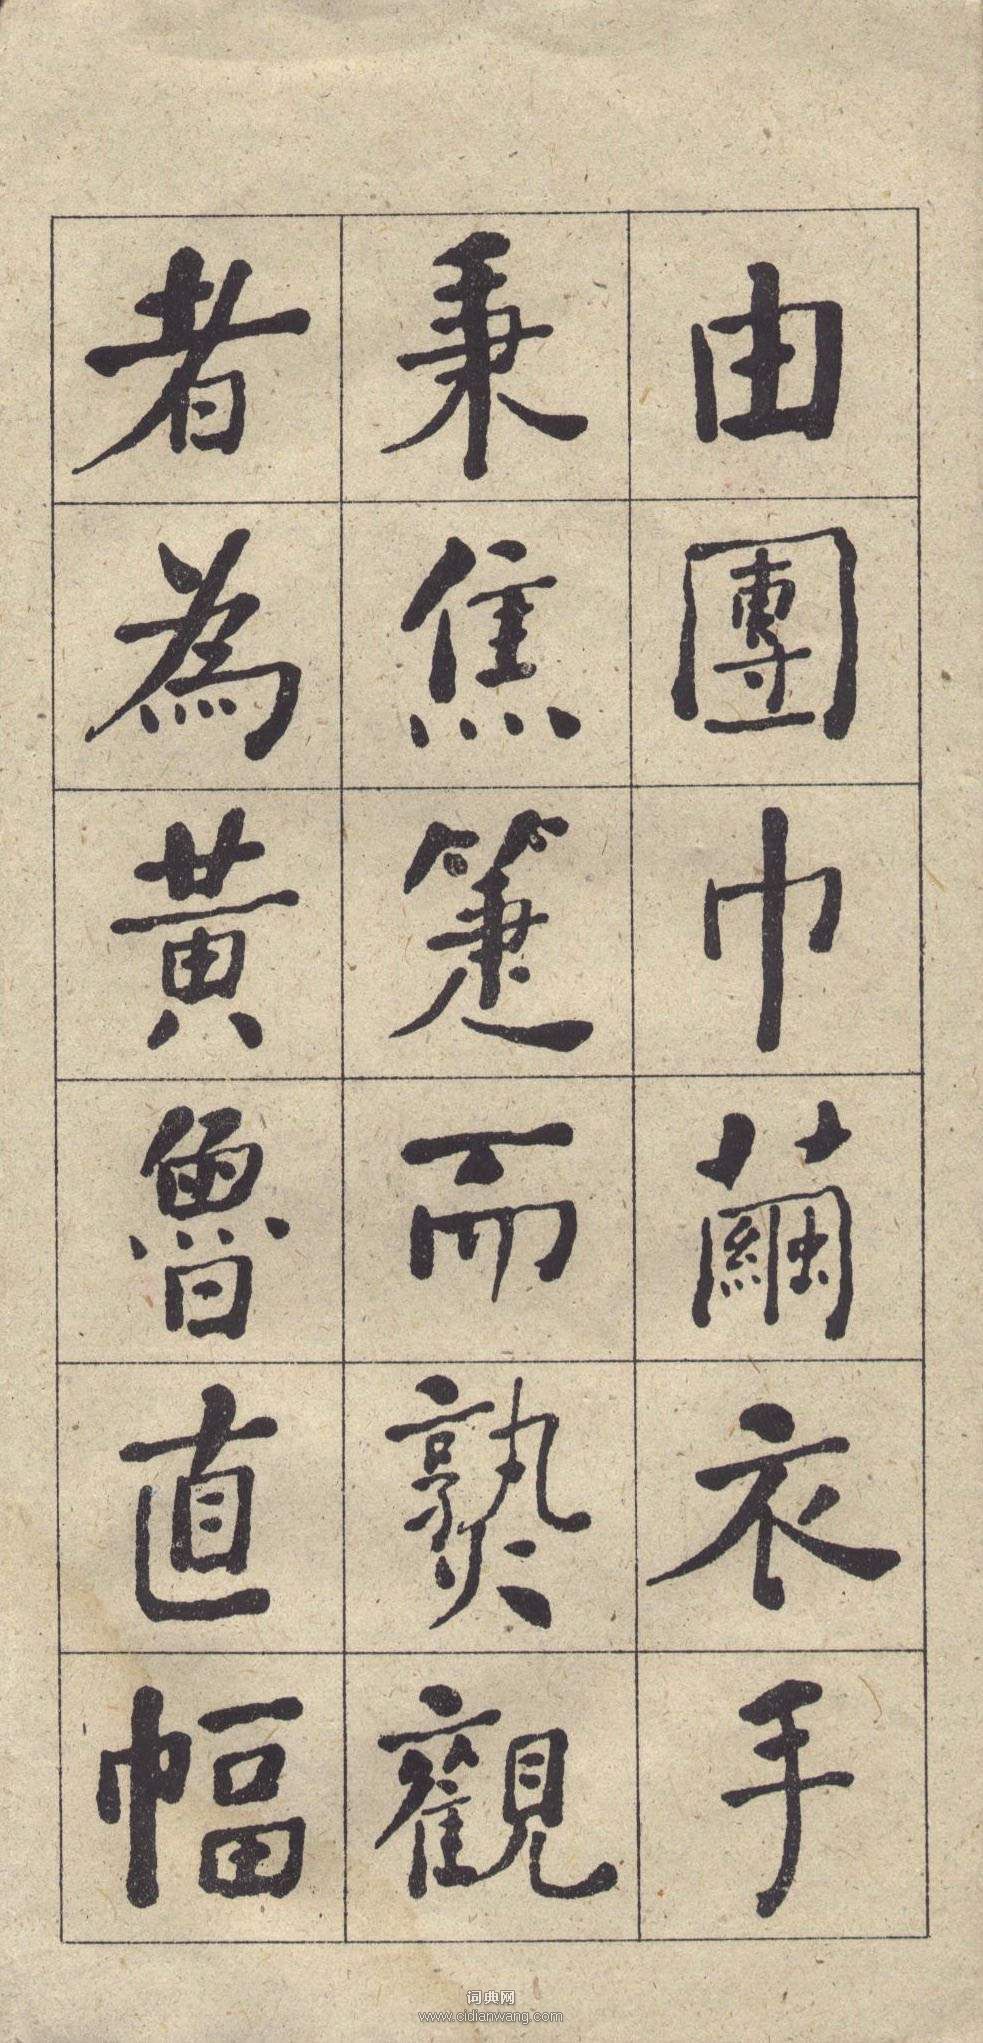 由團巾繭衣手
秉焦箑而熟觀
者為黃魯直幅
词典网
www.cidianwang.com